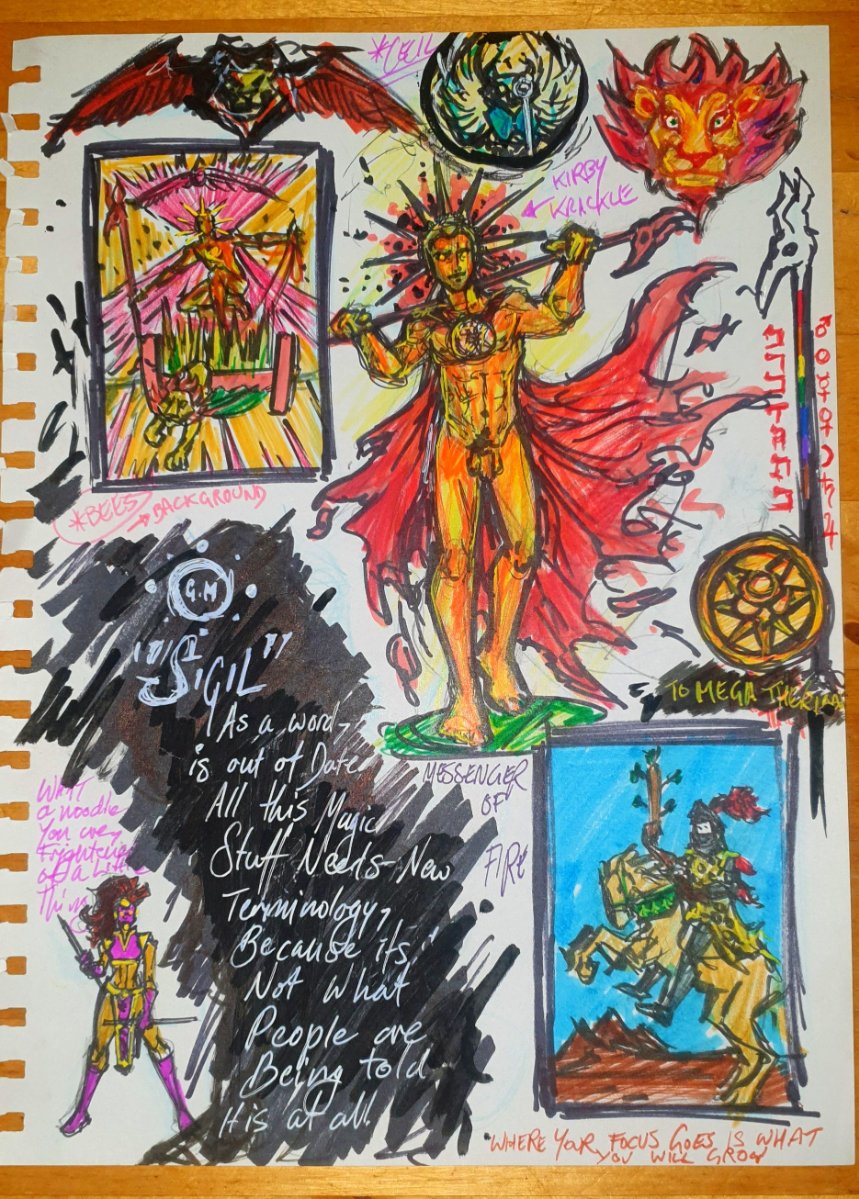 *CECIL
KIRBY
KRACKLE
*BEES
→ BACKGROUND
G.M
"SIGIL"
As a word
is out of Date
All this Magic
Stuff Needs New
Terminology,
Because its
Not what
People are
Being told
it is at all
TO MEGA THERION
MESSENGER
OF
FIRE
WHAT
a noodle
You are,
Frightened
of a Little
Thing
"WHERE YOUR FOCUS GOES IS WHAT
YOU WILL GROW